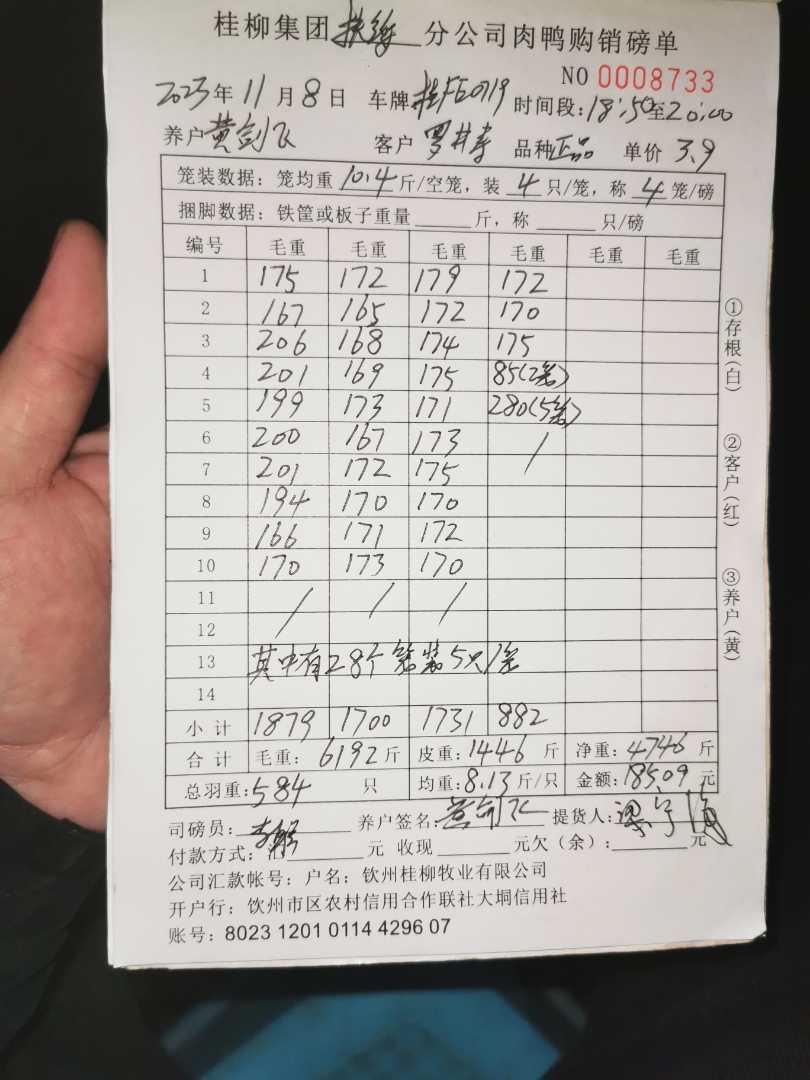 桂柳集团 分公司肉鸭购销磅单
NO 0008733
2023年11月8日 车牌 桂FE0719 时间段:18:50至20:00
养户 黄剑飞 客户 罗 品种 正品 单价 3.9
笼装数据：笼均重 10.4 斤/空笼，装 4 只/笼，称 4 笼/磅
捆脚数据：铁筐或板子重量 斤，称 只/磅
编号 毛重 毛重 毛重 毛重 毛重 毛重
1 175 172 179 172
2 167 165 172 170
3 206 168 174 175
4 201 169 175 85(2笼)
5 199 173 171 280(5笼)
6 200 167 173 /
7 201 172 175
8 194 170 170
9 166 171 172
10 170 173 170
11 / / /
12
13 其中有28个笼装5只/笼
14
小计 1879 1700 1731 882
合计 毛重：6192斤 皮重：1446斤 净重：4746斤
总羽重：584 只 均重：8.13斤/只 金额：18509元
司磅员： 养户签名：黄剑飞 提货人：
付款方式： 元 收现 元欠（余）： 元
公司汇款帐号：户名：钦州桂柳牧业有限公司
开户行：钦州市区农村信用合作联社大垌信用社
账号：8023 1201 0114 4296 07
①存根(白)
②客户(红)
③养户(黄)